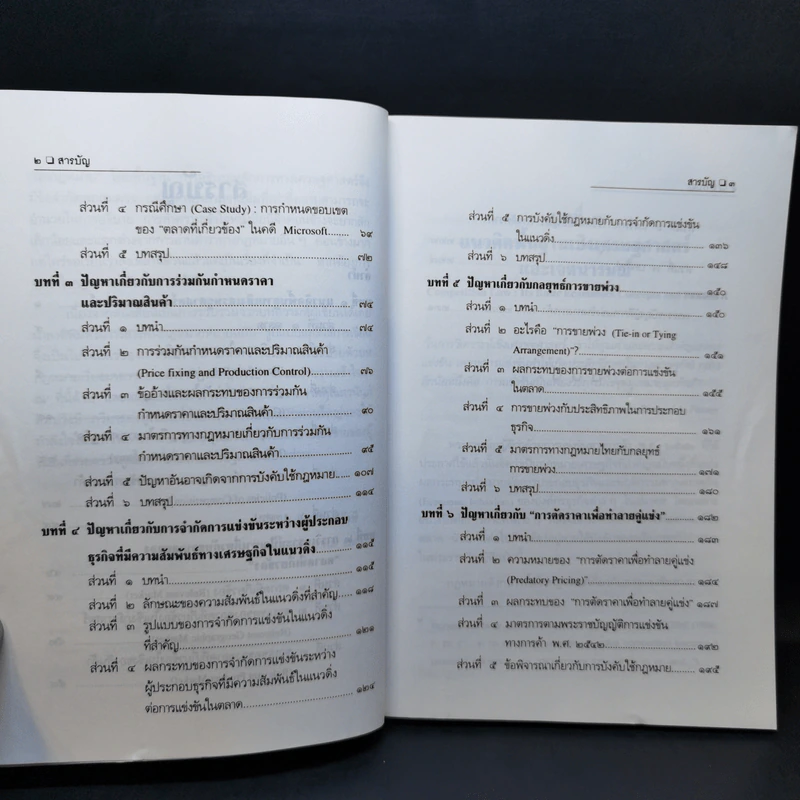 ๒ ❑ สารบัญ
ส่วนที่ ๔ กรณีศึกษา (Case Study) : การกำหนดขอบเขต
ของ “ตลาดที่เกี่ยวข้อง” ในคดี Microsoft........ ๖๙
ส่วนที่ ๕ บทสรุป........ ๗๒
บทที่ ๓ ปัญหาเกี่ยวกับการร่วมกันกำหนดราคา
และปริมาณสินค้า........ ๗๔
ส่วนที่ ๑ บทนำ........ ๗๔
ส่วนที่ ๒ การร่วมกันกำหนดราคาและปริมาณสินค้า
(Price fixing and Production Control)........ ๗๖
ส่วนที่ ๓ ข้ออ้างและผลกระทบของการร่วมกัน
กำหนดราคาและปริมาณสินค้า........ ๙๐
ส่วนที่ ๔ มาตรการทางกฎหมายเกี่ยวกับการร่วมกัน
กำหนดราคาและปริมาณสินค้า........ ๙๕
ส่วนที่ ๕ ปัญหาอันอาจเกิดจากการบังคับใช้กฎหมาย..... ๑๐๗
ส่วนที่ ๖ บทสรุป........ ๑๑๔
บทที่ ๔ ปัญหาเกี่ยวกับการจำกัดการแข่งขันระหว่างผู้ประกอบ
ธุรกิจที่มีความสัมพันธ์ทางเศรษฐกิจในแนวดิ่ง........ ๑๑๕
ส่วนที่ ๑ บทนำ........ ๑๑๕
ส่วนที่ ๒ ลักษณะของความสัมพันธ์ในแนวดิ่งที่สำคัญ..... ๑๑๘
ส่วนที่ ๓ รูปแบบของการจำกัดการแข่งขันในแนวดิ่ง
ที่สำคัญ........ ๑๒๑
ส่วนที่ ๔ ผลกระทบของการจำกัดการแข่งขันระหว่าง
ผู้ประกอบธุรกิจที่มีความสัมพันธ์ในแนวดิ่ง
ต่อการแข่งขันในตลาด........ ๑๒๔
สารบัญ ❑ ๓
ส่วนที่ ๕ การบังคับใช้กฎหมายกับการจำกัดการแข่งขัน
ในแนวดิ่ง........ ๑๓๖
ส่วนที่ ๖ บทสรุป........ ๑๔๘
บทที่ ๕ ปัญหาเกี่ยวกับกลยุทธ์การขายพ่วง........ ๑๕๐
ส่วนที่ ๑ บทนำ........ ๑๕๐
ส่วนที่ ๒ อะไรคือ “การขายพ่วง (Tie-in or Tying
Arrangement)”?........ ๑๕๑
ส่วนที่ ๓ ผลกระทบของการขายพ่วงต่อการแข่งขัน
ในตลาด........ ๑๕๕
ส่วนที่ ๔ การขายพ่วงกับประสิทธิภาพในการประกอบ
ธุรกิจ........ ๑๖๑
ส่วนที่ ๕ มาตรการทางกฎหมายไทยกับกลยุทธ์
การขายพ่วง........ ๑๗๑
ส่วนที่ ๖ บทสรุป........ ๑๘๐
บทที่ ๖ ปัญหาเกี่ยวกับ “การตัดราคาเพื่อทำลายคู่แข่ง”........ ๑๘๒
ส่วนที่ ๑ บทนำ........ ๑๘๓
ส่วนที่ ๒ ความหมายของ “การตัดราคาเพื่อทำลายคู่แข่ง
(Predatory Pricing)”........ ๑๘๔
ส่วนที่ ๓ ผลกระทบของ “การตัดราคาเพื่อทำลายคู่แข่ง” ๑๘๗
ส่วนที่ ๔ มาตรการตามพระราชบัญญัติการแข่งขัน
ทางการค้า พ.ศ. ๒๕๔๒........ ๑๙๒
ส่วนที่ ๕ ข้อพิจารณาเกี่ยวกับการบังคับใช้กฎหมาย........ ๑๙๕